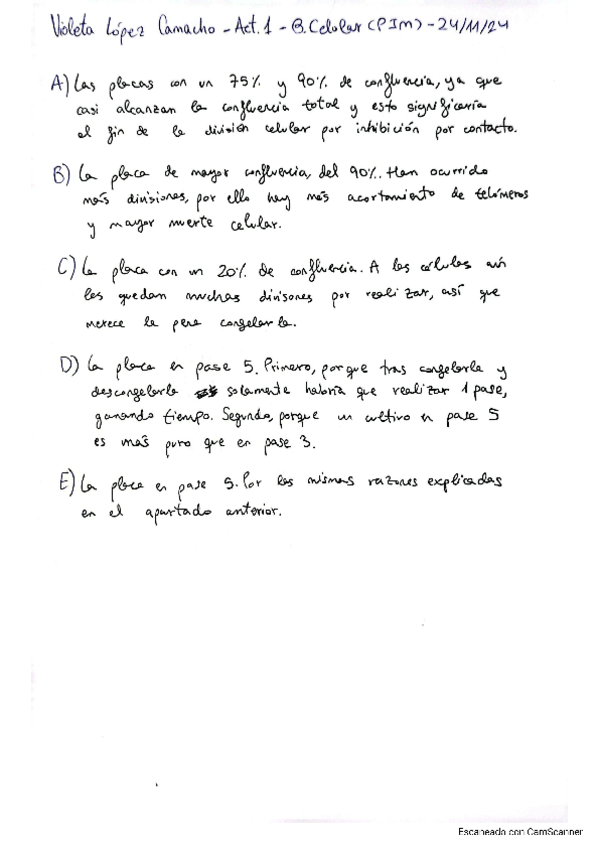 Violeta López Camacho - Act. 1 - B. Celular (PIM) - 24/11/24
A) Las placas con un 75% y 90% de confluencia, ya que
casi alcanzan la confluencia total y esto significaría
el fin de la división celular por inhibición por contacto.
B) La placa de mayor confluencia, del 90%. Han ocurrido
más divisiones, por ello hay más acortamiento de telómeros
y mayor muerte celular.
C) La placa con un 20% de confluencia. A las células aún
les quedan muchas divisones por realizar, así que
merece la pena congelarla.
D) La placa en pase 5. Primero, porque tras congelarla y
descongelarla solamente habría que realizar 1 pase,
ganando tiempo. Segundo, porque un cultivo en pase 5
es más puro que en pase 3.
E) La placa en pase 5. Por las mismas razones explicadas
en el apartado anterior.
Escaneado con CamScanner